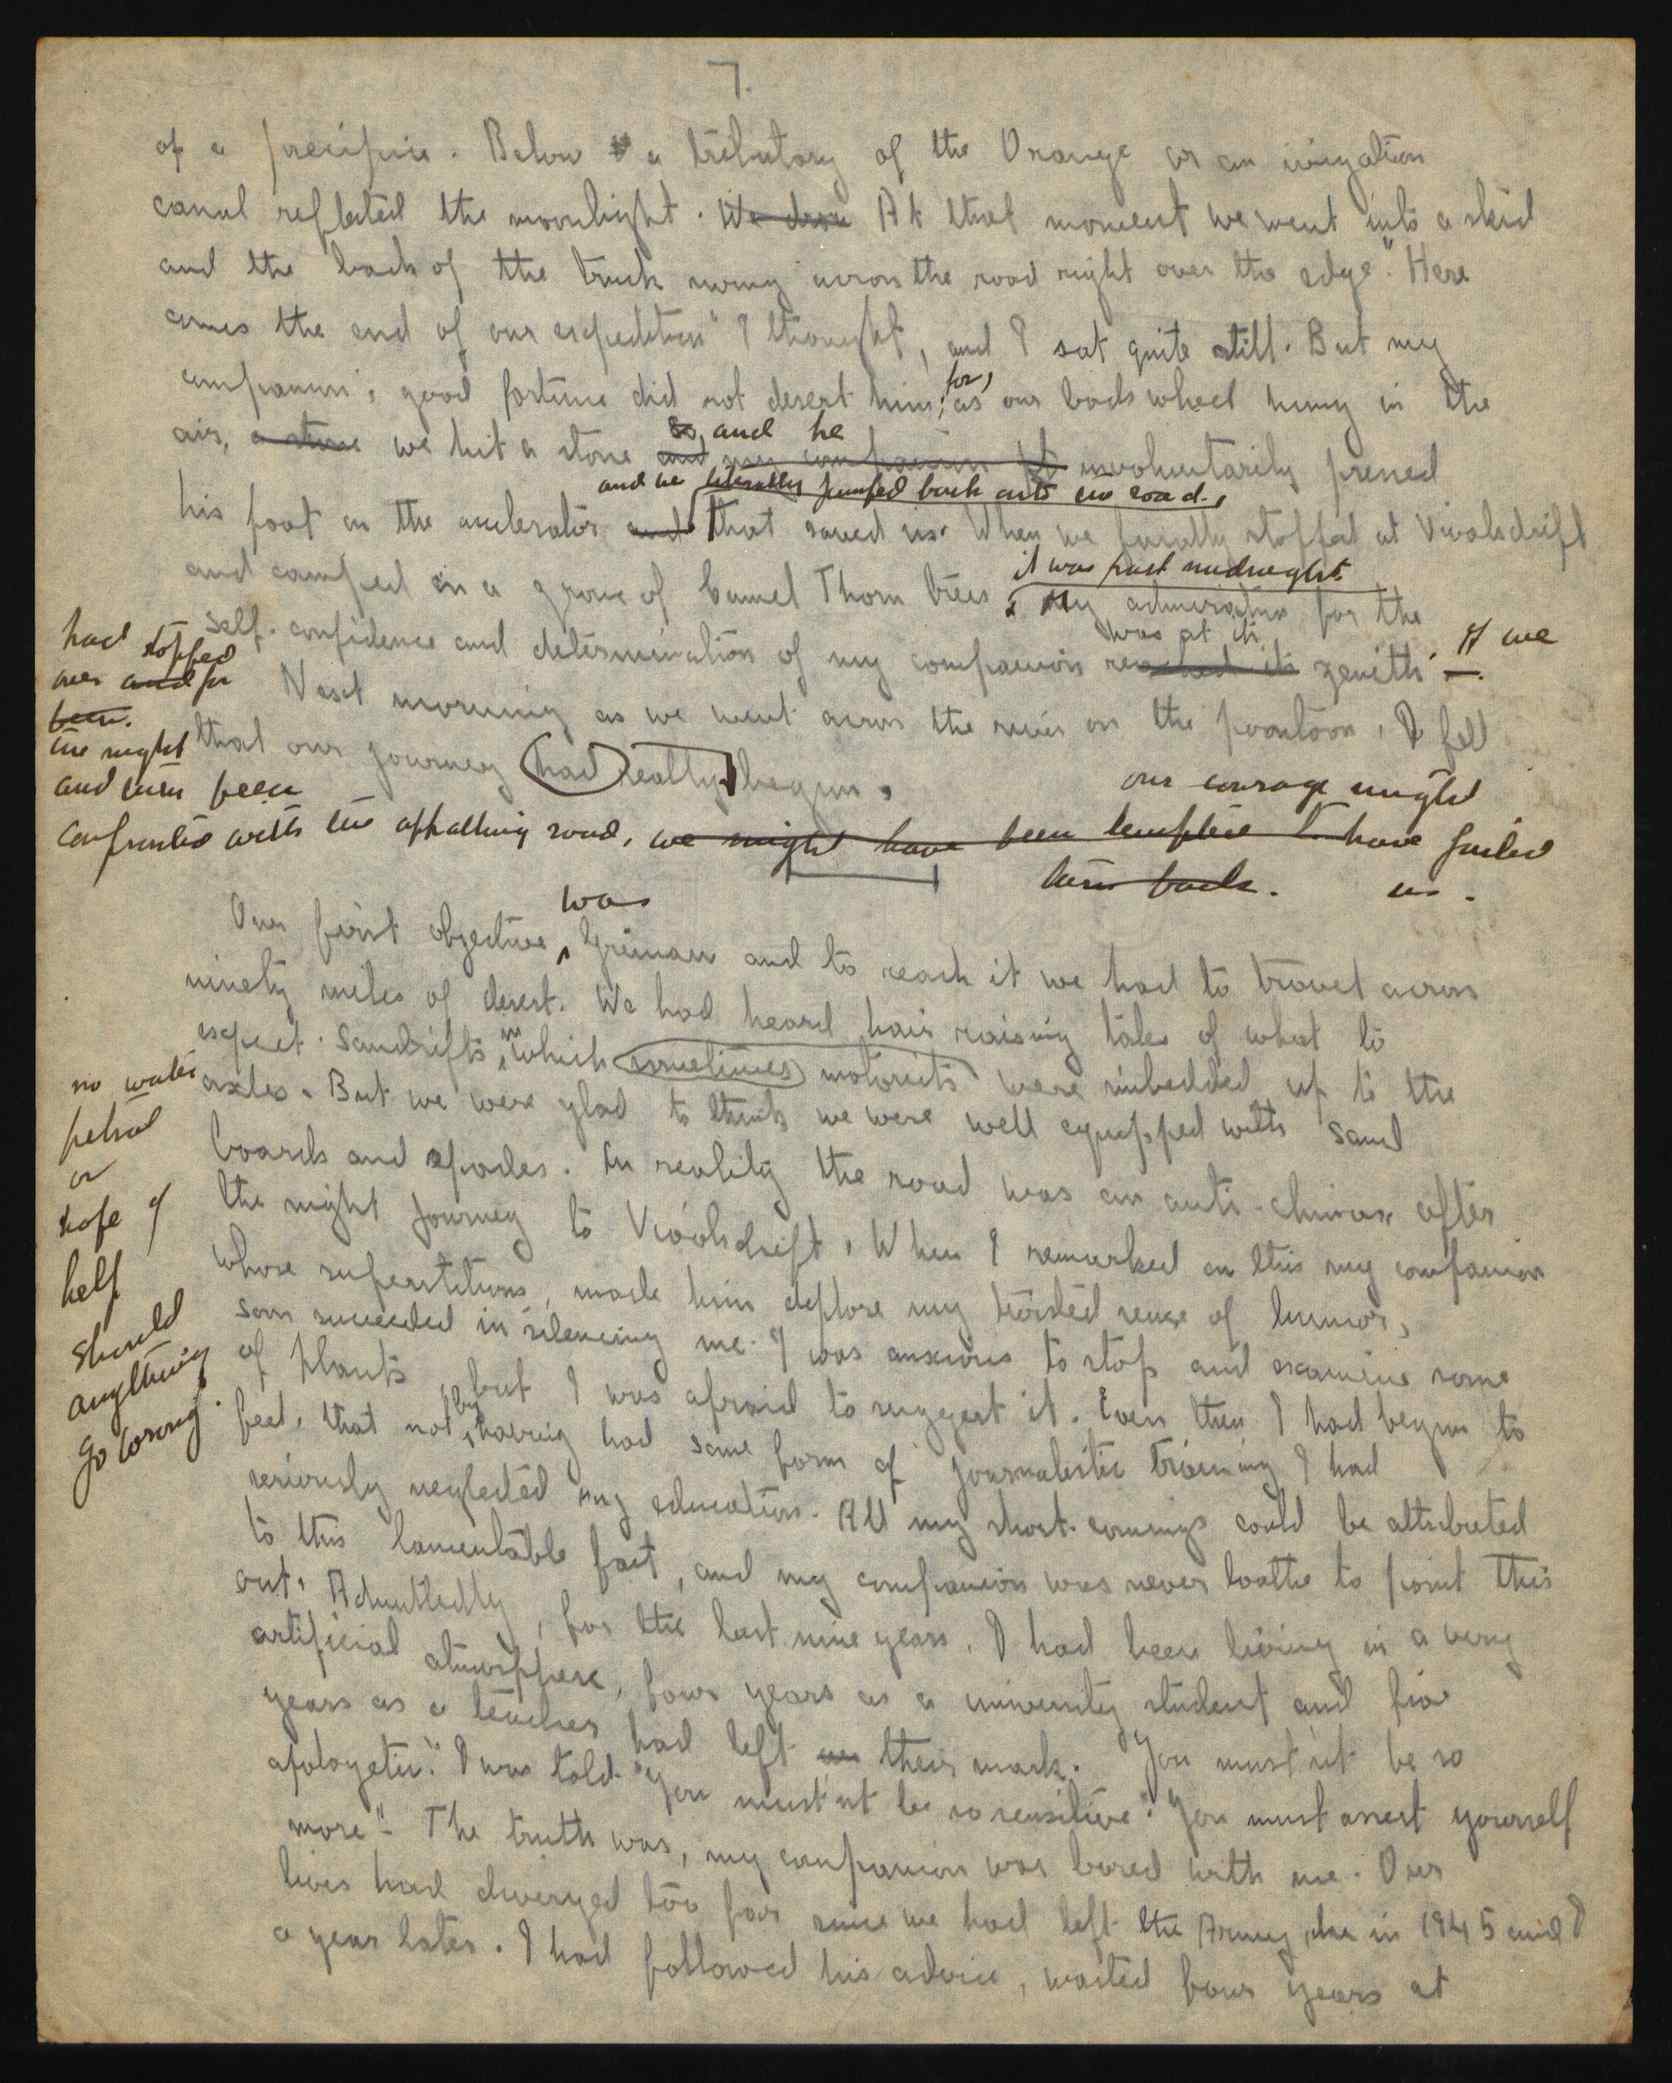 7.
of a precipice. Below a tributary of the Orange or an irrigation
canal reflected the moonlight. We At that moment we went into a skid
and the back of the truck swung across the road right over the edge. "Here
comes the end of our expedition" I thought, and I sat quite still. But my
for,
companion's good fortune did not desert him; as our back wheel hung in the
so, and he
air, a stone we hit a stone and my companion involuntarily pressed
and we literally jumped back onto the road.,
his foot on the accelerator and that saved us. When we finally stopped at Vioolsdrift
it was past midnight
and camped in a grove of Camel Thorn trees, My admiration for the
was at its
self-confidence and determination of my companion reached its zenith. If we
had stopped
over and for
been.
the night
and then been
confronted with the appalling road, we might have been tempted to have failed
our courage might
turn back. us.
Next morning as we went across the river on the pontoon, I felt
that our journey had really begun.
was
Our first objective, Grünau and to reach it we had to travel across
ninety miles of desert. We had heard hair raising tales of what to
in
expect. Sandrifts, which sometimes motorists were imbedded up to the
axles. But we were glad to think we were well equipped with sand
no water
petrol
or
hope of
help
should
anything
go wrong.
boards and spades. In reality the road was an anti-climax after
the night journey to Vioolsdrift. When I remarked on this my companion
whose superstitions, made him deplore my twisted sense of humor,
soon succeeded in silencing me. I was anxious to stop and examine some
of plants, but I was afraid to suggest it. Even then I had begun to
by
feel, that not having had some form of journalistic training I had
seriously neglected my education. All my short-comings could be attributed
to this lamentable fact, and my companion was never loathe to point this
out. Admittedly, for the last nine years, I had been living in a very
artificial atmosphere, four years as a university student and five
years as a teacher had left their mark. "You must'nt be so
apologetic". I was told "You must'nt be so sensitive". "You must assert yourself
more". The truth was, my companion was bored with me. Our
lives had diverged too far since we had left the Army, he in 1945 and I
a year later. I had followed his advice, wasted four years at